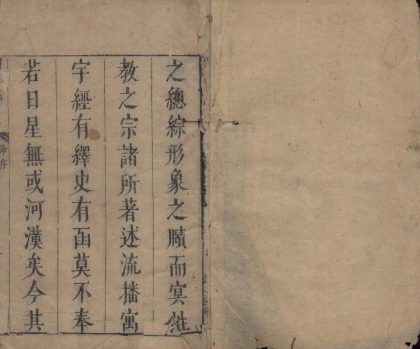 之總綜形象之賾而冥牲
教之宗諸所著述流播寓
宇經有繹史有函莫不奉
若日星無或河漢矣今其